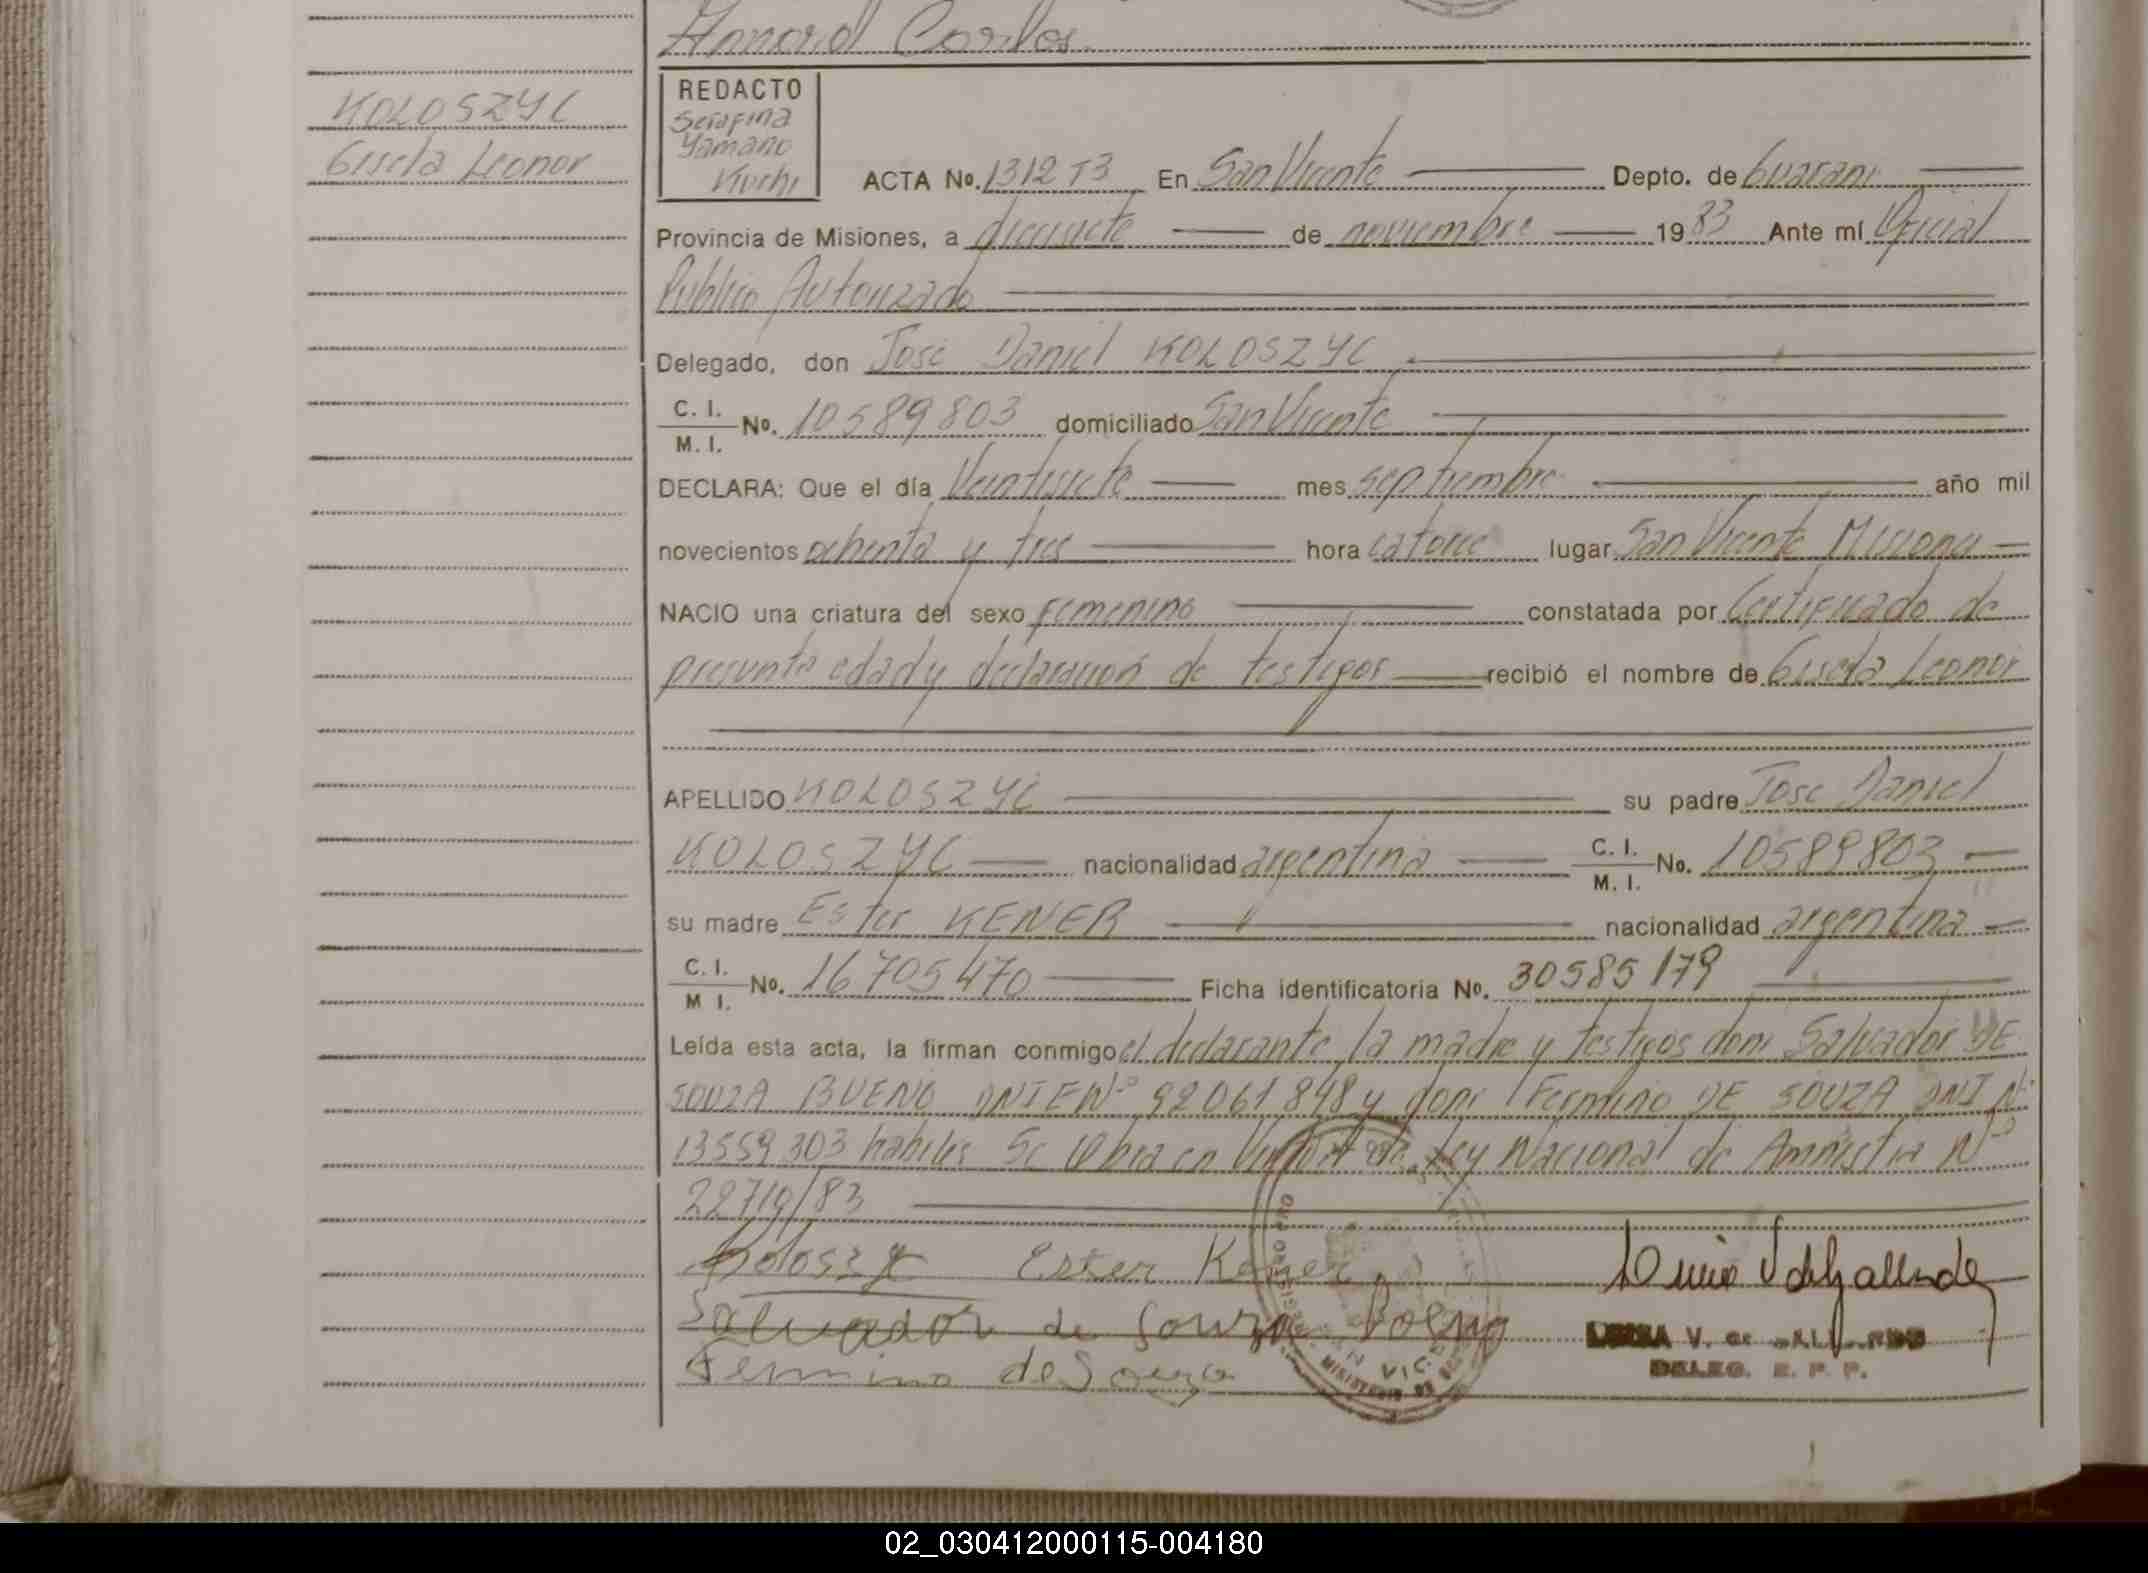 Amord Carlos
KOLOSZYC
Gisela Leonor
REDACTO
Serafina
Yamano
Kuchi
ACTA No. 1312 T3 En San Vicente Depto. de Guarani
Provincia de Misiones, a diecisiete de noviembre 1983 Ante mí Oficial
Público Autorizado
Delegado, don José Daniel KOLOSZYC
C. I.
M. I. No. 10589803 domiciliado San Vicente
DECLARA: Que el día Veintisiete mes septiembre año mil
novecientos ochenta y tres hora catorce lugar San Vicente Misiones
NACIO una criatura del sexo femenino constatada por Certificado de
presunta edad y declaración de testigos recibió el nombre de Gisela Leonor
APELLIDO KOLOSZYC su padre José Daniel
KOLOSZYC nacionalidad argentina C. I.
M. I. No. 10589803
su madre Ester KENER nacionalidad argentina
C. I.
M I. No. 16705470 Ficha identificatoria No. 30585179
Leída esta acta, la firman conmigo el declarante, la madre y testigos don: Salvador DE
SOUZA BUENO DNIE Nº 92061848 y don: Fermino DE SOUZA DNI Nº
13559303 habiles Se Obra en Virtud de Ley Nacional de Amnistia Nº
22710/83
Ester Kener
Salvador de Souza Boeno
Fermino de Souza
V. de
DELEG. E. P. P.
02_030412000115-004180